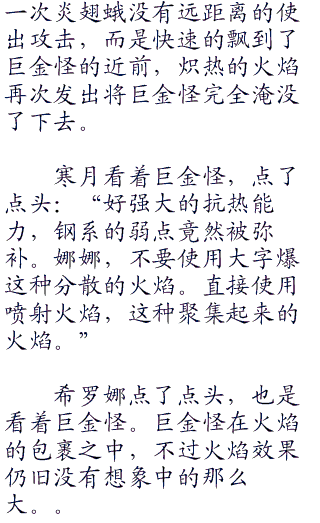 一次炎翅蛾没有远距离的使
出攻击，而是快速的飘到了
巨金怪的近前，炽热的火焰
再次发出将巨金怪完全淹没
了下去。
寒月看着巨金怪，点了
点头：“好强大的抗热能
力，钢系的弱点竟然被弥
补。娜娜，不要使用大字爆
这种分散的火焰。直接使用
喷射火焰，这种聚集起来的
火焰。”
希罗娜点了点头，也是
看着巨金怪。巨金怪在火焰
的包裹之中，不过火焰效果
仍旧没有想象中的那么
大。。